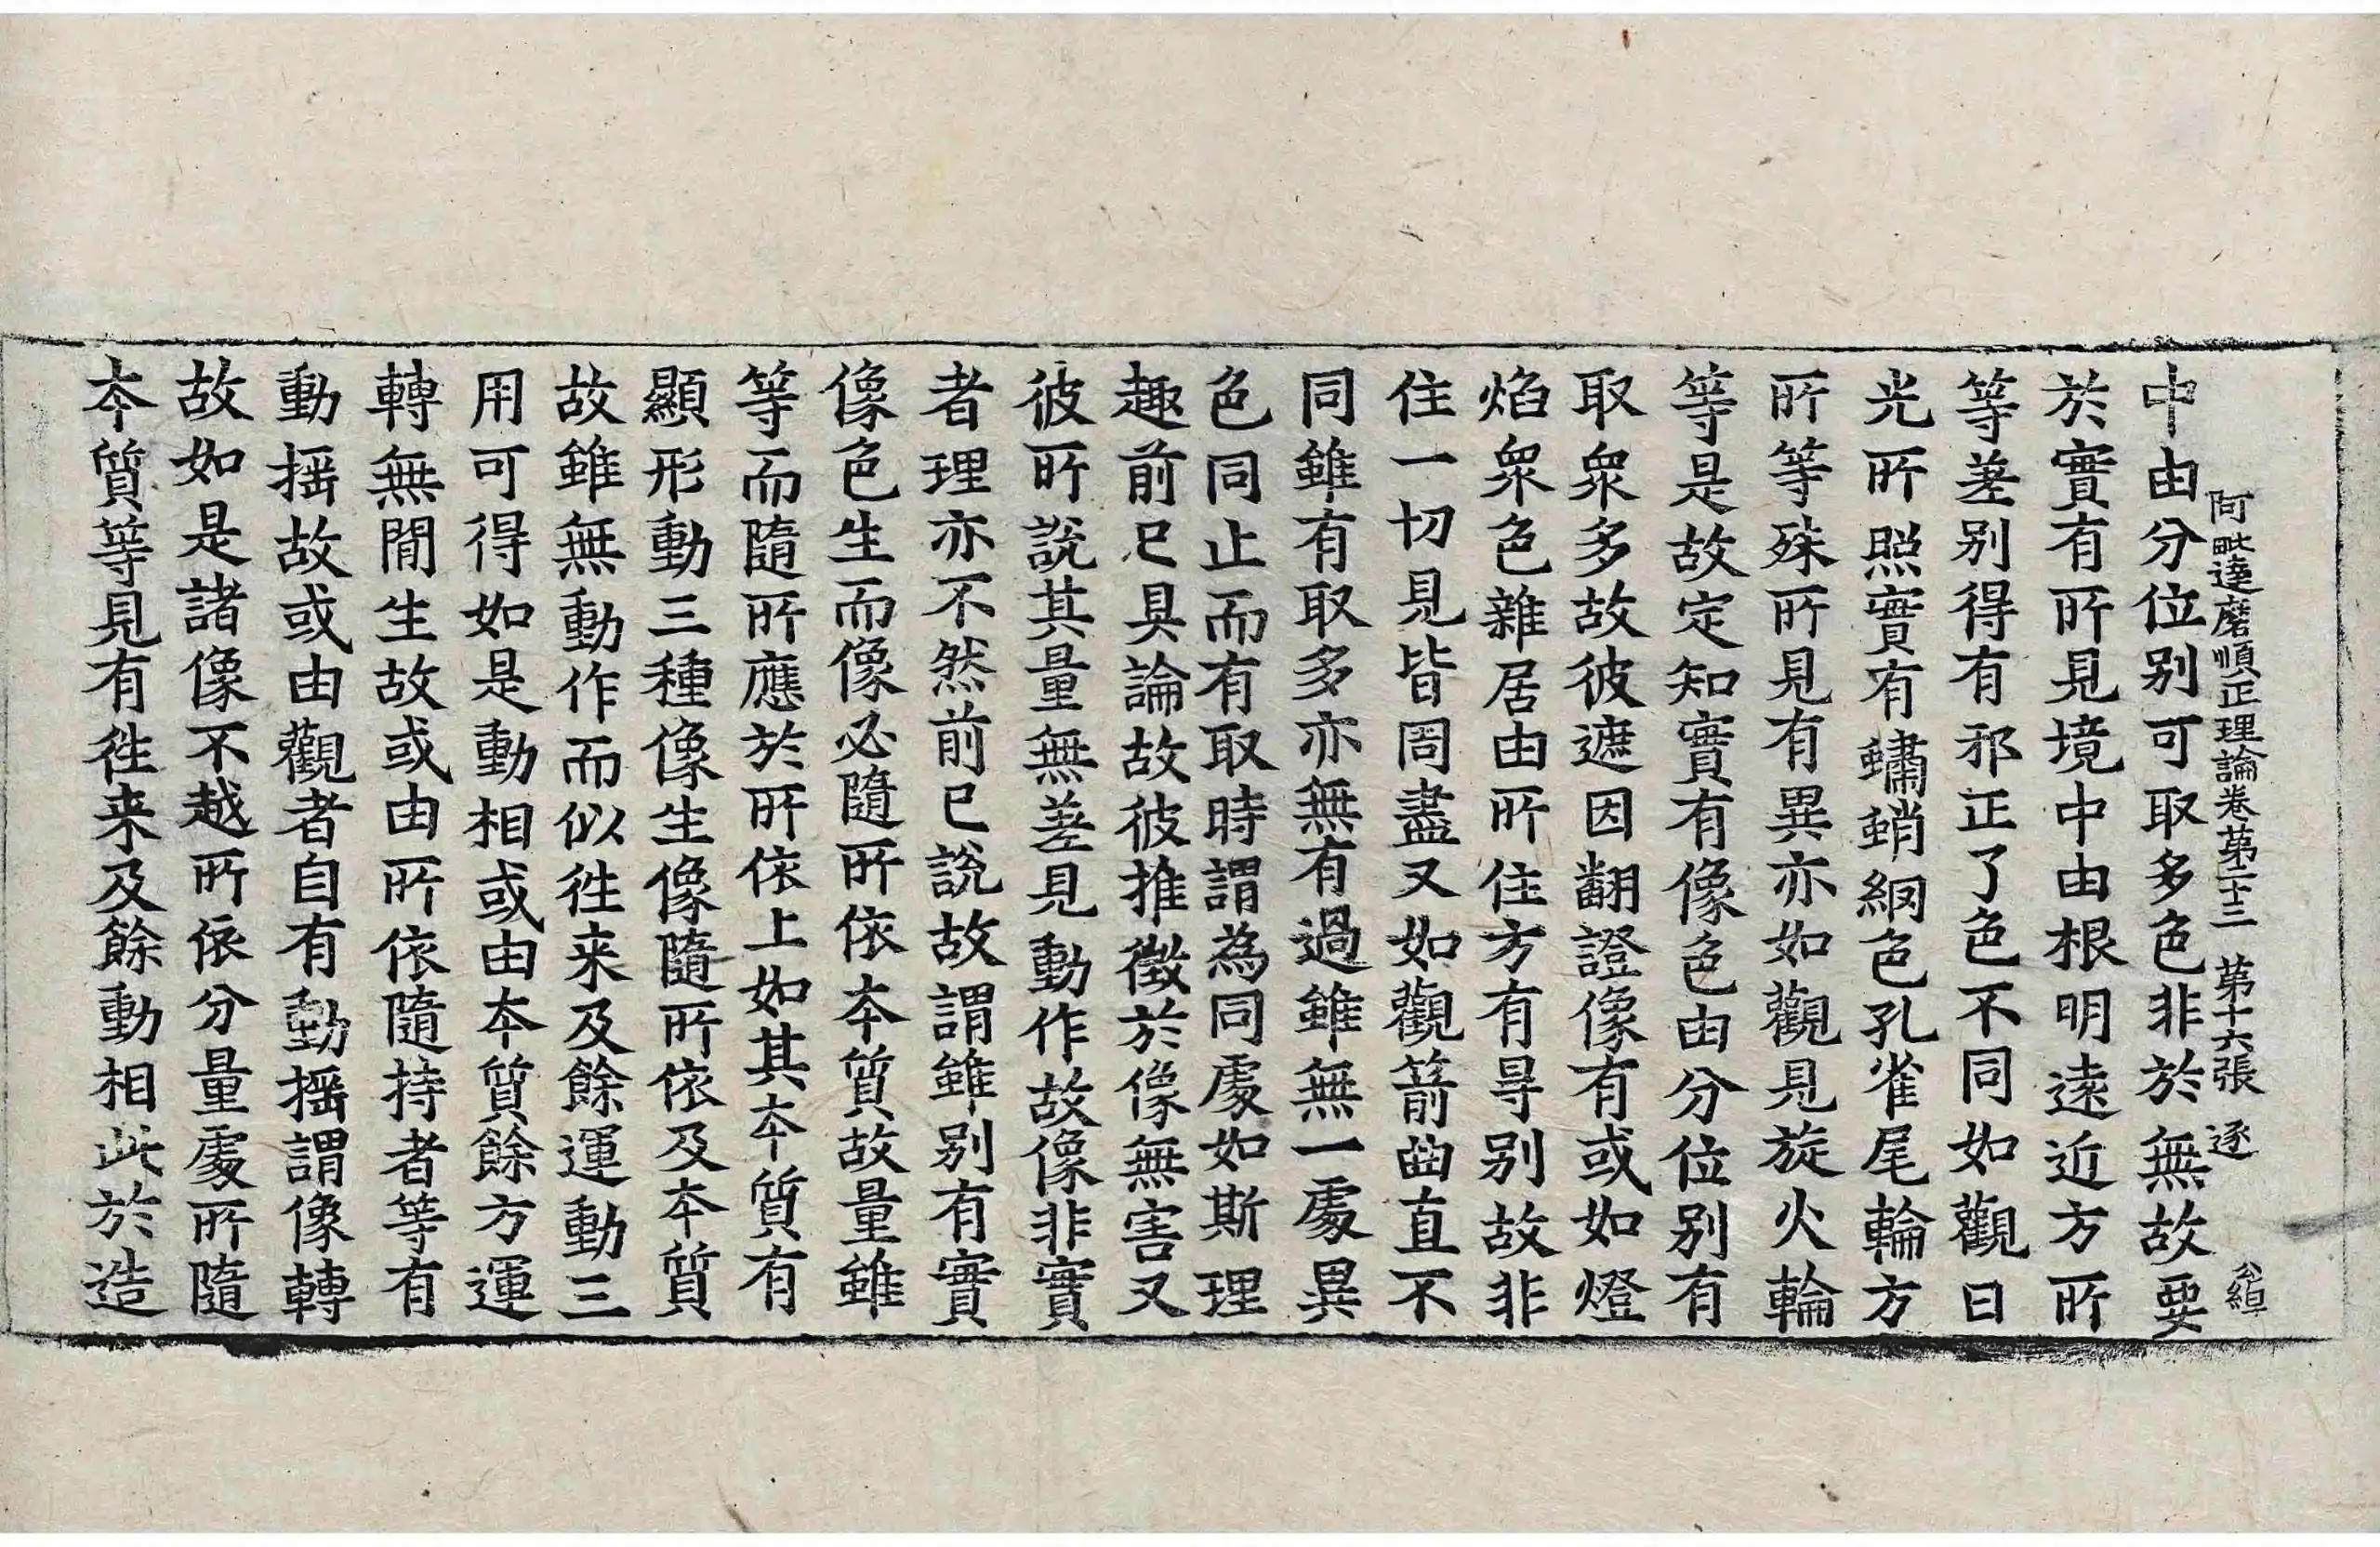 阿毗達磨順正理論卷第二十三 第十六張 逐
中由分位别可取多色非於無故要
於實有所見境中由根明遠近方所
等差别得有邪正了色不同如觀日
光所照實有蠨蛸網色孔雀尾輪方
所等殊所見有異亦如觀見旋火輪
等是故定知實有像色由分位别有
取衆多故彼遮因翻證像有或如燈
焰衆色雜居由所住方有㝵别故非
住一切見皆同盡又如觀箭曲直不
同雖有取多亦無有過雖無一處異
色同止而有取時謂為同處如斯理
趣前已具論故彼推徵於像無害又
彼所說其量無差見動作故像非實
者理亦不然前已說故謂雖别有實
像色生而像必隨所依本質故量雖
等而隨所應於所依上如其本質有
顯形動三種像生像隨所依及本質
故雖無動作而似徃来及餘運動三
用可得如是動相或由本質餘方運
轉無間生故或由所依隨持者等有
動揺故或由觀者自有動揺謂像轉
故如是諸像不越所依分量處所隨
本質等見有徃来及餘動相此於造